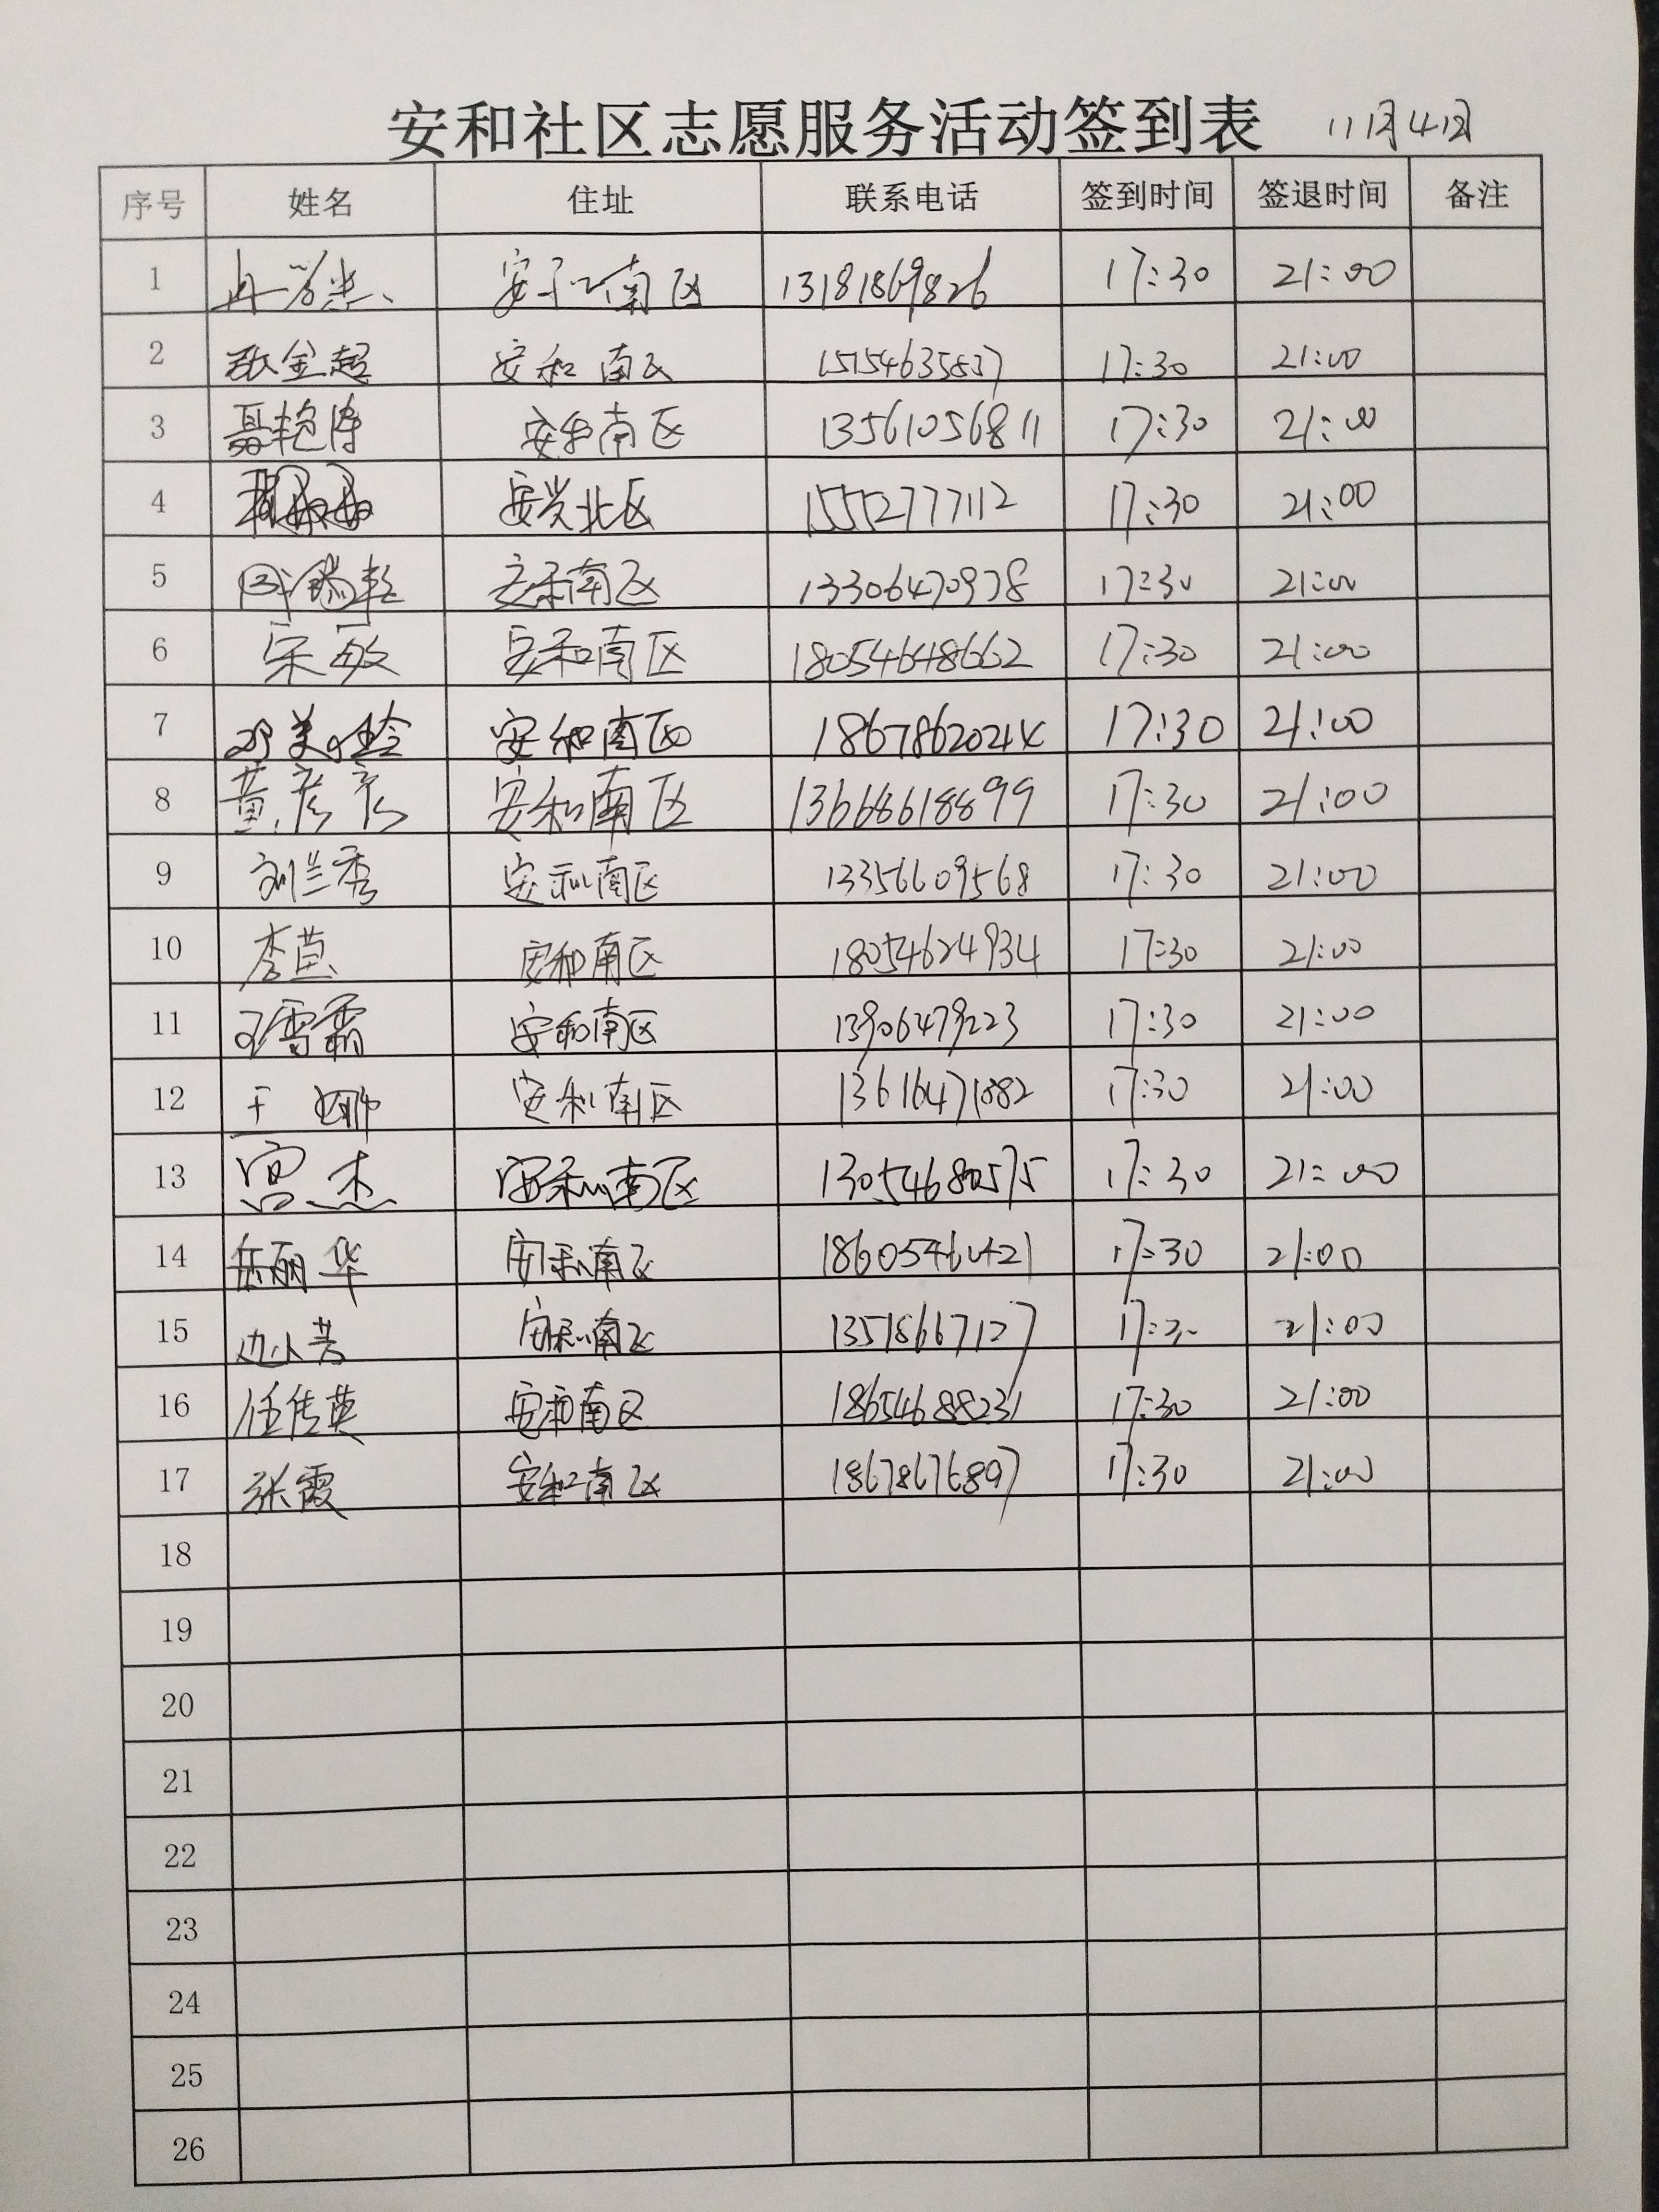 安和社区志愿服务活动签到表 11月4日
序号 姓名 住址 联系电话 签到时间 签退时间 备注
1 安和南区 13181869826 17:30 21:00
2 张金超 安和南区 15154635837 17:30 21:00
3 聂艳涛 安和南区 13561056811 17:30 21:00
4 安兴北区 15552777112 17:30 21:00
5 安和南区 13306470978 17:30 21:00
6 宋敏 安和南区 18054648662 17:30 21:00
7 邓美玲 安和南区 17:30 21:00
8 黄彦彦 安和南区 13668618899 17:30 21:00
9 刘兰秀 安和南区 13356609568 17:30 21:00
10 李苗 安和南区 18054624934 17:30 21:00
11 王雪霜 安和南区 13906479223 17:30 21:00
12 王娜 安和南区 13616471882 17:30 21:00
13 宫杰 安和南区 13054680575 17:30 21:00
14 岳丽华 安和南区 18605460421 17:30 21:00
15 安和南区 13518667127 17:30 21:00
16 任传英 安和南区 18654688231 17:30 21:00
17 张霞 安和南区 18678676897 17:30 21:00
18
19
20
21
22
23
24
25
26